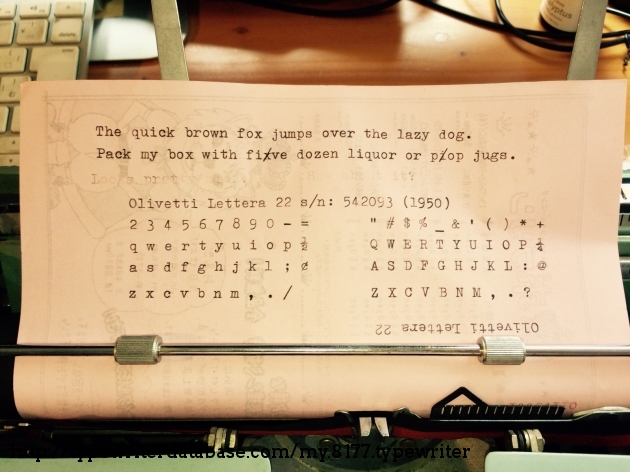 The quick brown fox jumps over the lazy dog.
Pack my box with fi/xve dozen liquor or p/op jugs.
Looks pret it?
Olivetti Lettera 22 s/n: 542093 (1950)
2 3 4 5 6 7 8 9 0 - = " # $ % _ & ' ( ) * +
q w e r t y u i o p ½ Q W E R T Y U I O P ¼
a s d f g h j k l ; ¢ A S D F G H J K L : @
z x c v b n m , . / Z X C V B N M , . ?
Olivetti Lettera 22
database.com/my.8177.typewriter